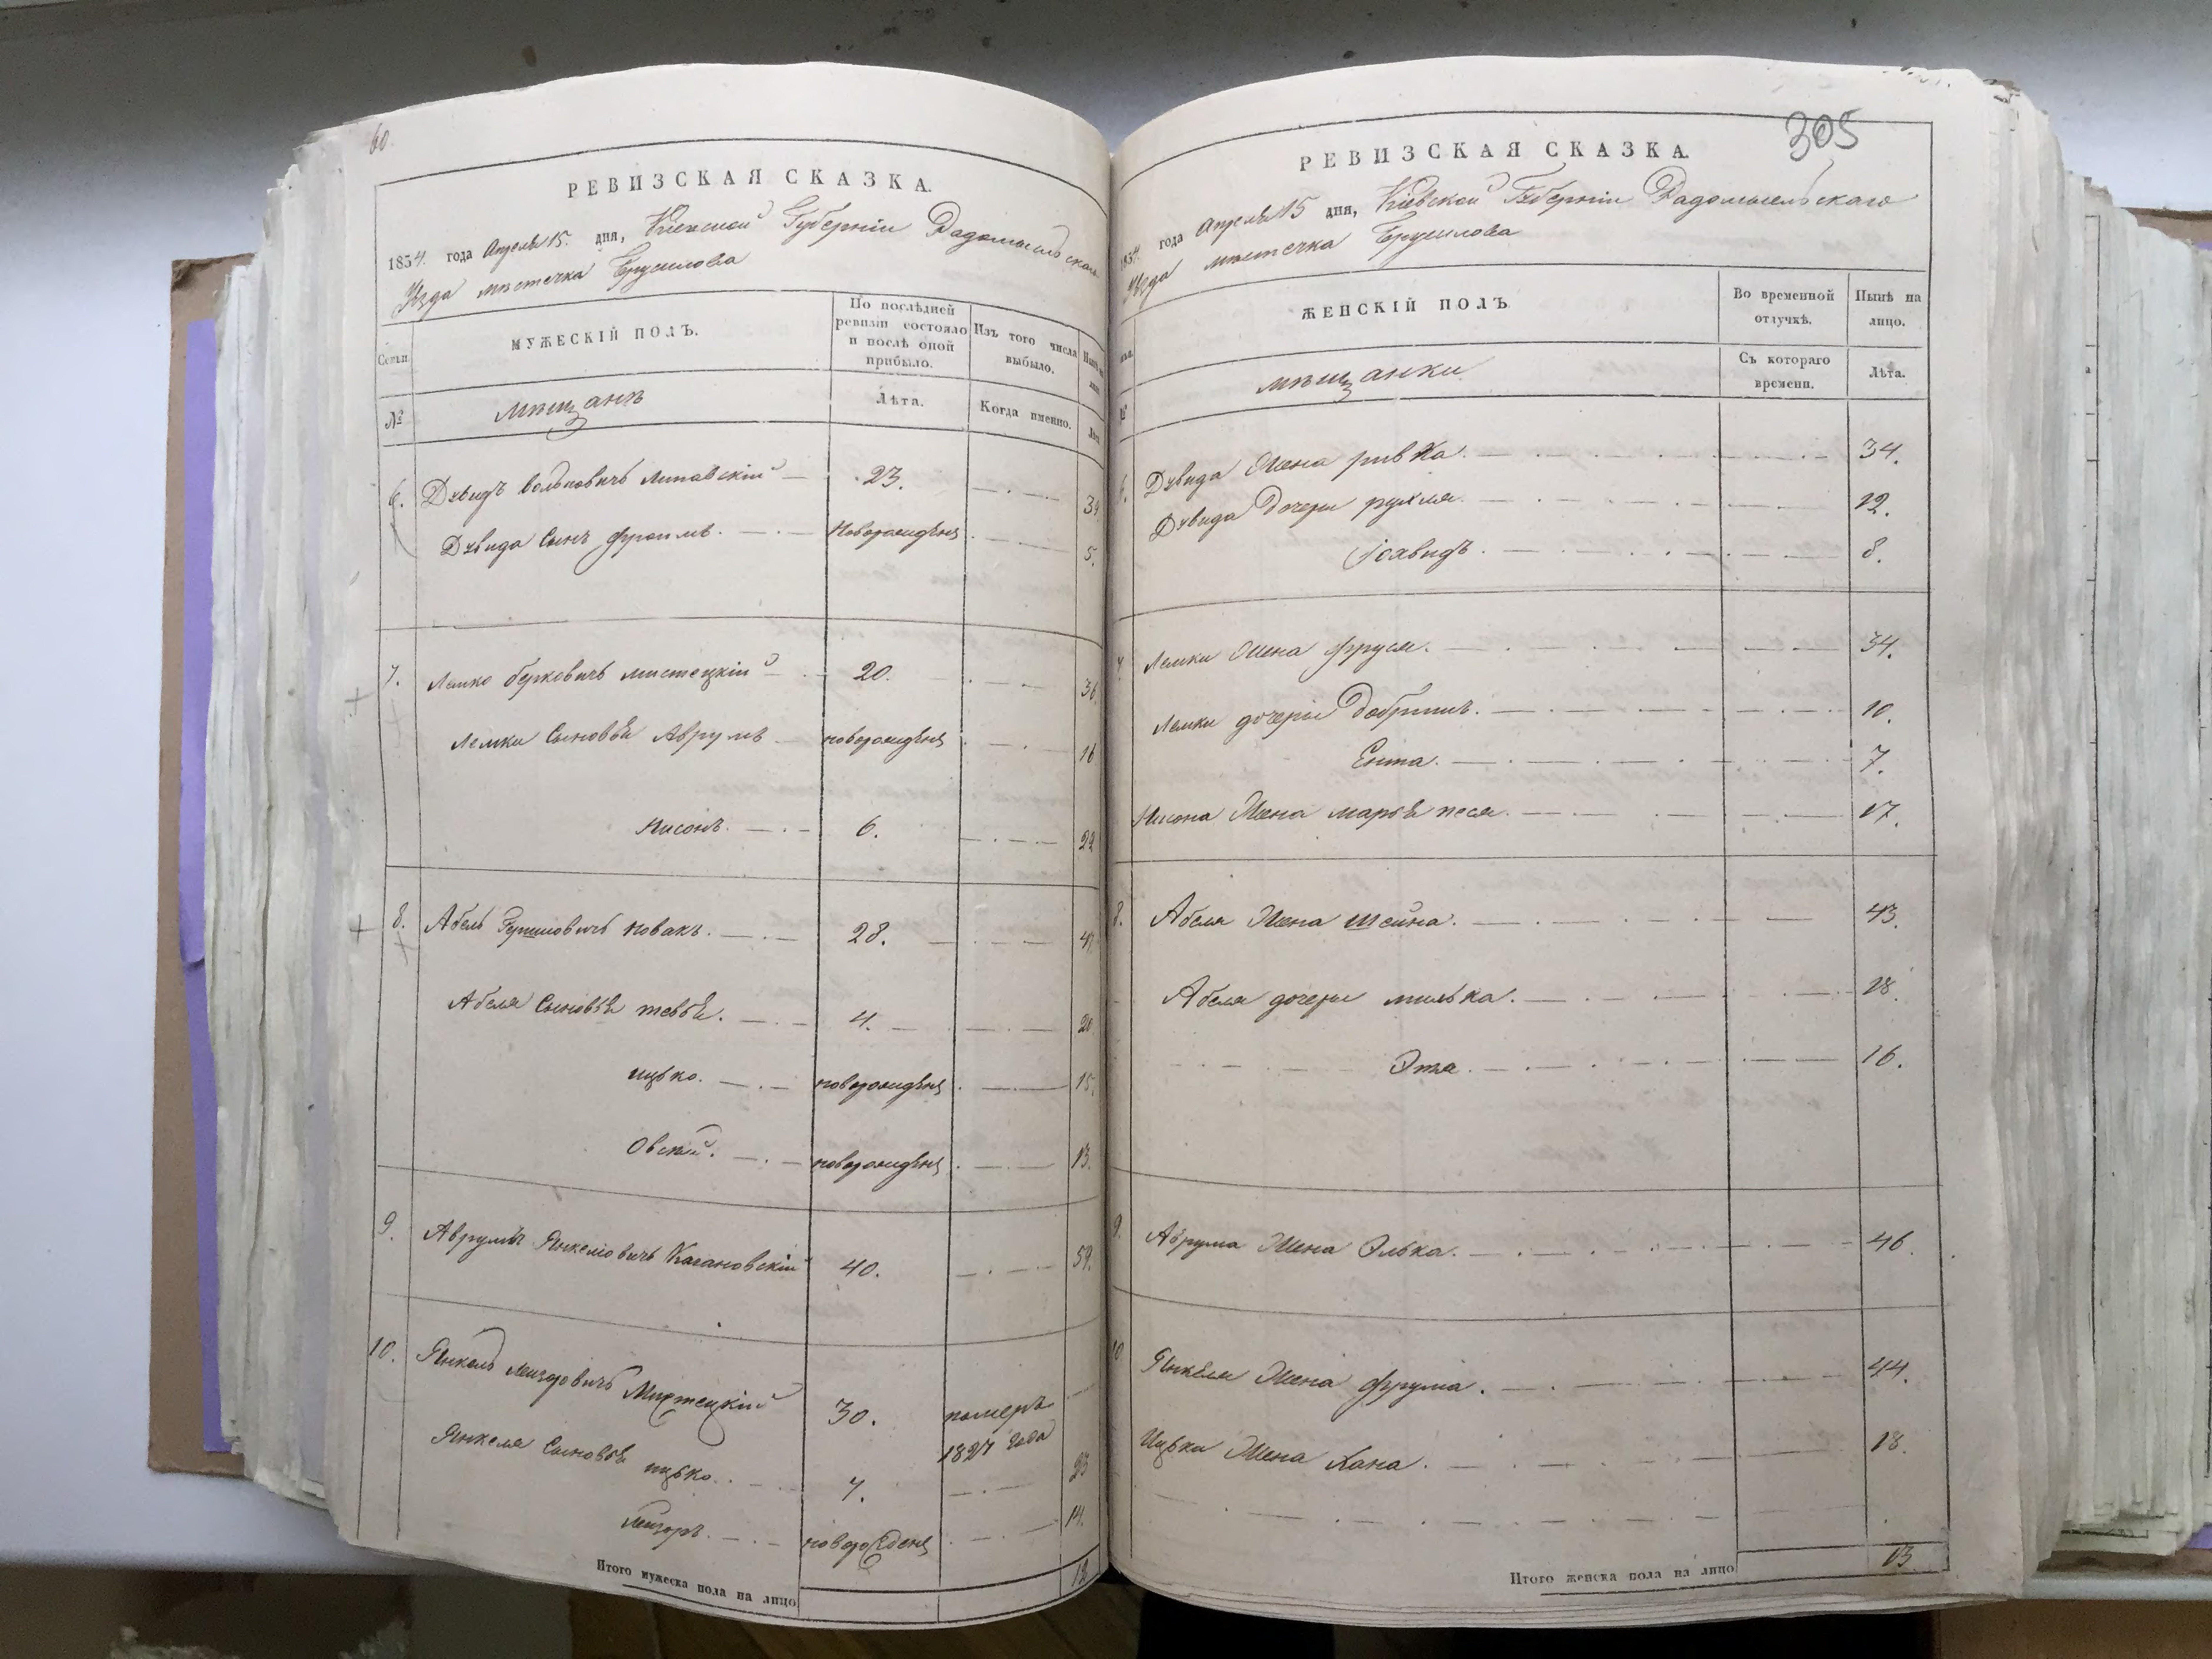 60.
РЕВИЗСКАЯ СКАЗКА.
1854. года Апреля 15. дня, Кіевской Губерніи Радомысльскаго
Уѣзда мѣстечка Брусилова
Семьи.
МУЖЕСКІЙ ПОЛЪ.
По послѣдней ревизіи состояло и послѣ оной прибыло.
Изъ того числа выбыло.
№
мѣщанѣ
Лѣта.
Когда именно.
6. Дувидъ Вольковичъ Липавскій — 23.
Дувида Сынъ Фроимъ. новорожденъ 5.
7. Лемко Берковичъ Мистецкій 20. 36
Лемки Сыновья Аврумъ новорожденъ 16
Нисонъ. 6. 22
8. Абель Гершковичъ Новакъ. 28.
Абеля Сыновья тевья. 4. 20
ицько. новорожденъ 15.
Овсѣй. новорожденъ 13.
9. Аврумъ Янкеліовичъ Кагановскій 40. 54.
10. Янкель Лейзоровичъ Мистецкій 30. померъ
Янкеля Сыновья ицько. 7. 23
Лейзоръ. новорожденъ 14.
Итого мужеска пола на лицо 12
305
РЕВИЗСКАЯ СКАЗКА.
1854. года Апреля 15 дня, Кіевской Губерніи Радомысельскаго
Уѣзда мѣстечка Брусилова
ЖЕНСКІЙ ПОЛЪ.
Во временной отлучкѣ.
Нынѣ на лицо.
мѣщанки
Съ котораго времени.
Лѣта.
Дувида Жена ривка. 34.
Дувида Дочери рухля. 12.
8.
Лемки Жена фруся. 34.
Лемки дочери Добришъ. 10.
Ента. 7.
Нисона Жена марья песя. 17.
8. Абеля Жена шейна. 43.
Абеля дочери милька. 18.
Этя. 16.
9. Аврума Жена Элька. 46.
10 Янкеля Жена фрума. 44.
Ицька Жена Хана. 18.
Итого женска пола на лицо 13.